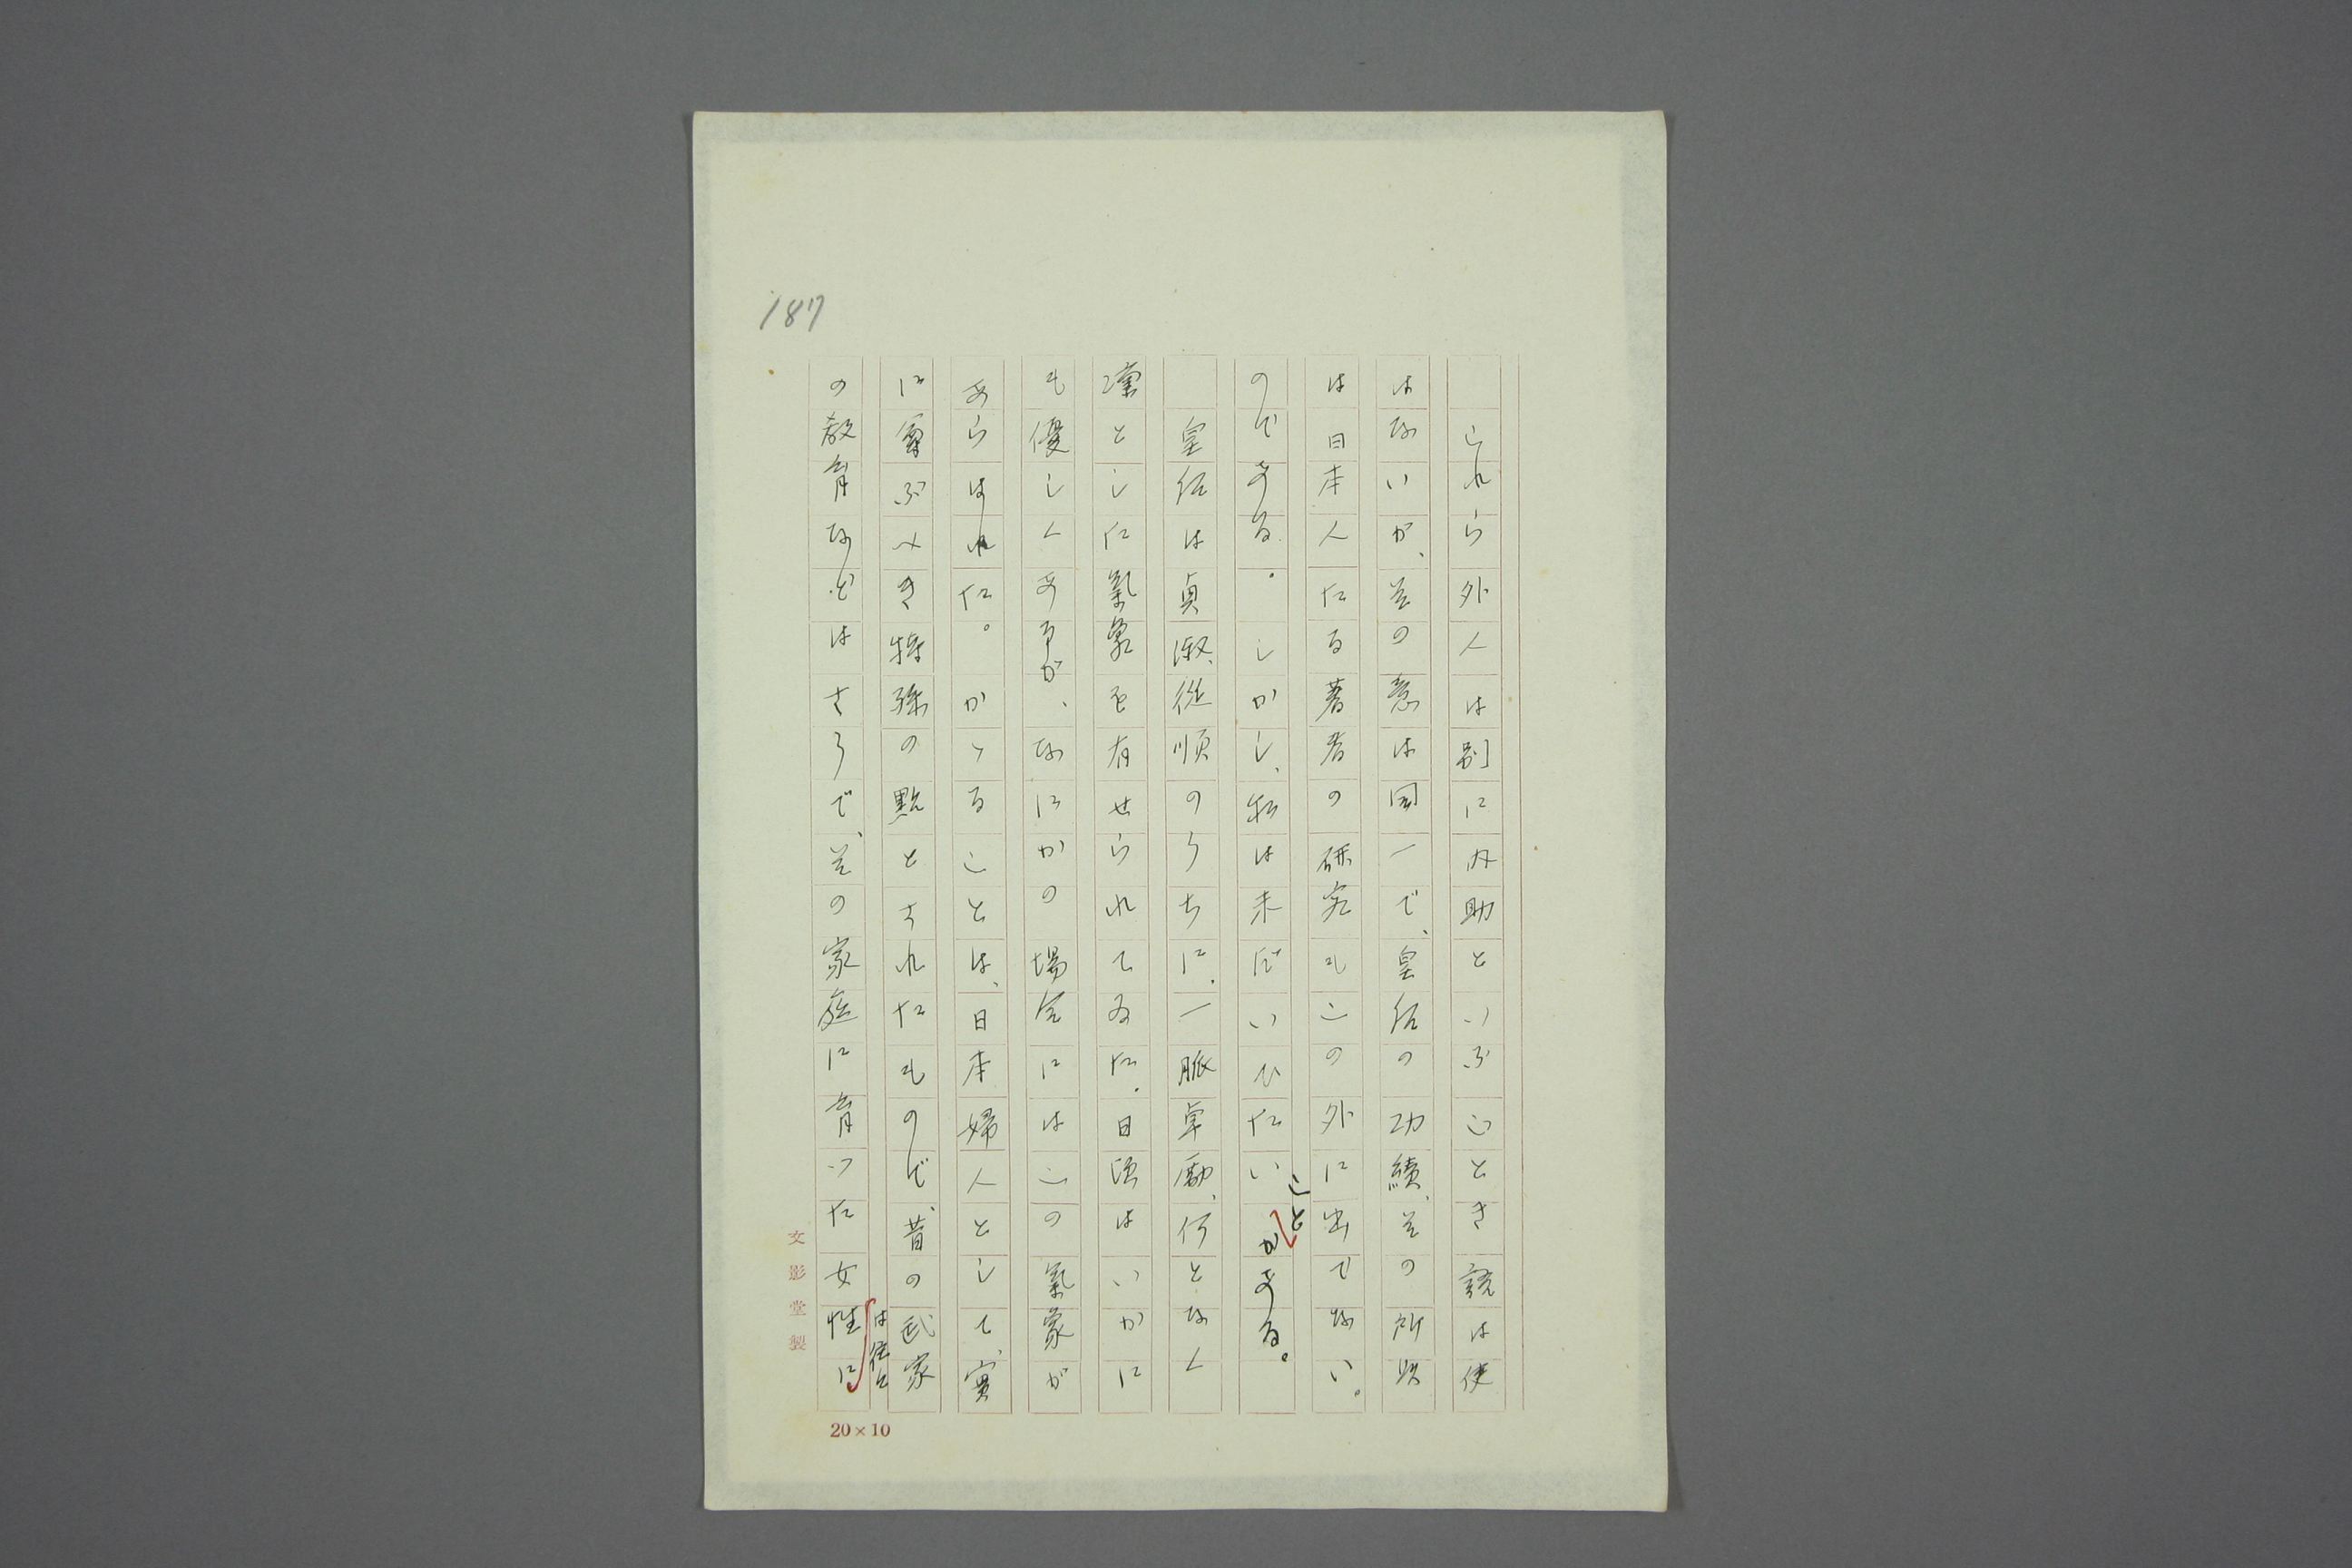 187
これら外人は別に内助といふごとき語は使
はないが、その意は同一で、皇后の功績、その所説
は日本人たる著者の研究もこの外に出でない。
のである。しかし、私は未だいひたいことがある。
皇后は貞淑、従順のうちに、一脈卓勵、何となく
凜とした氣象を有せられてゐた。日頃はいかに
も優しくあるが、なにかの場合にはこの氣象が
あらはれた。かゝることは、日本婦人として、實
に尊ぶべき特殊の點とされたもので、昔の武家
の教育などはさうで、その家庭に育つた女性に
は往々
文影堂製
20×10